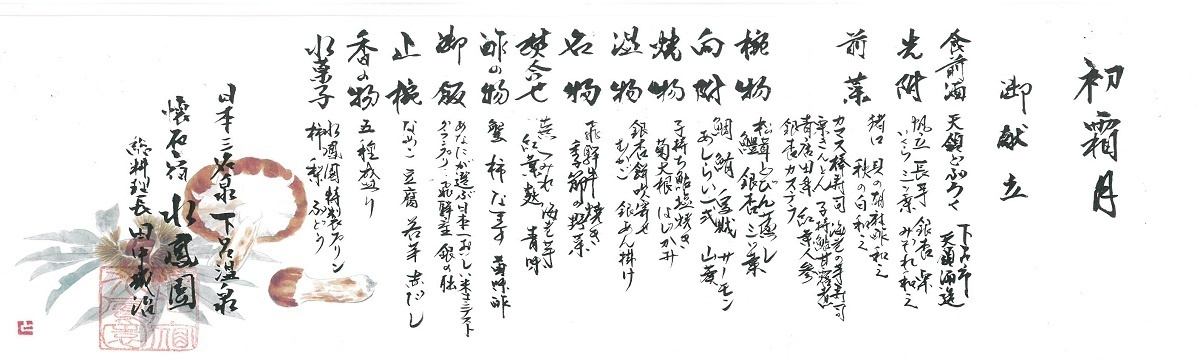 初霜月
御献立
食前酒 天領どぶろく 下呂市 天領酒造
先附 帆立 長芋 銀杏 栗
いくら 三つ葉 みぞれ和え
猪口 貝の胡桃酢和え
秋の白和え
前菜 カマス棒寿司 海老の手寿司
栗きんとん 子持鮎甘露煮
青唐田楽 紅葉人参
銀杏カステラ
椀物 松茸どびん蒸し
鱧 銀杏 三つ葉
向附 鯛 鮪 サーモン
あしらい一式 山葵
焼物 子持ち鮎塩焼き
菊大根 はじかみ
温物 銀杏餅 吹寄せ
むかご 銀あん掛け
名物 飛騨牛 焼き
季節の野菜
焚合せ 海老芋
紅葉麩 青味
酢の物 蟹 柿なます
御飯 あなたが選ぶ日本一おいしい米コンテスト
グランプリ 飛騨産 銀の朏
止椀 なめこ 豆腐 若芽 赤だし
香の物 五種盛り
水菓子 水鳳園特製プリン
柿 梨 ぶどう
日本三名泉 下呂温泉
懐石宿 水鳳園
総料理長 田中